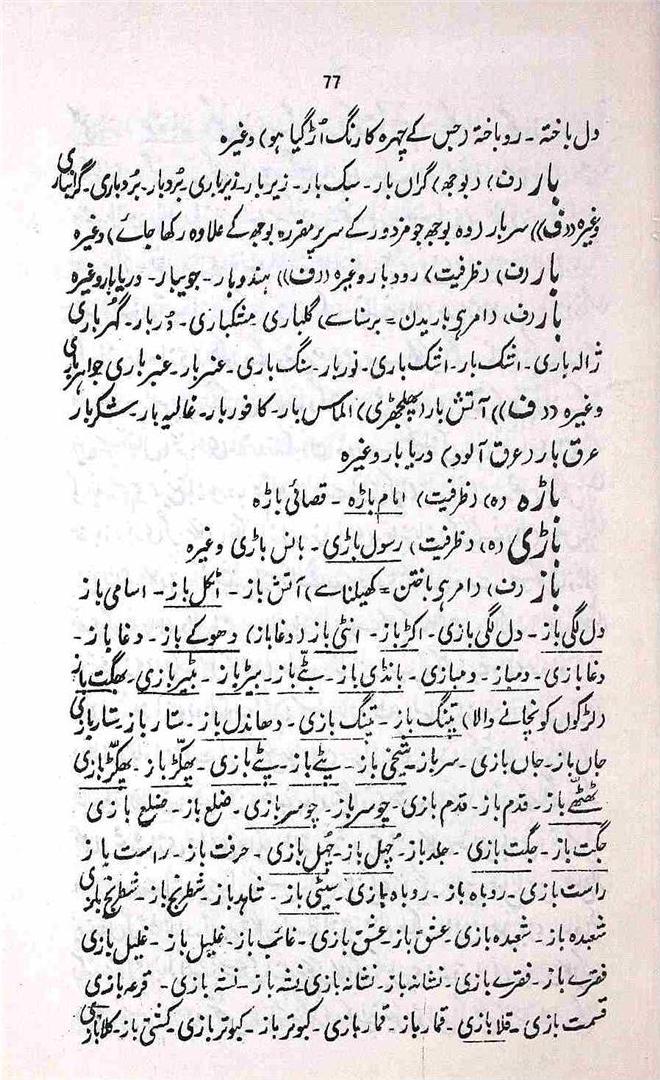 77
دل باختہ ۔ رو باختہ (جس کے چہرہ کا رنگ اُڑ گیا ہو) وغیرہ
بار (ف) (بوجھ) گراں بار ۔ سبک بار ۔ زیر بار ۔ زیر باری ۔ بُردبار ۔ بُردباری ۔ گرانباری
وغیرہ ((ف)) سر بار (وہ بوجھ جو مزدور کے سر پر مقررہ بوجھ کے علاوہ رکھا جائے) وغیرہ
بار (ف) (ظرفیت) رود بار وغیرہ ((ف)) ہندو بار ۔ جویبار ۔ دریا بار وغیرہ
بار (ف) (امر ہی باریدن = برسنا سے) گلباری ۔ مشکباری ۔ دُر بار ۔ گہر باری
ژالہ باری ۔ اشک بار ۔ اشک باری ۔ نور بار ۔ سنگ باری ۔ عنبر بار ۔ عنبر باری جواہر باری
وغیرہ ((ف)) آتش بار (پھلجھڑی) الماس بار ۔ کافور بار ۔ غالیہ بار ۔ شکر بار
عرق بار (عرق آلود) دریا بار وغیرہ
باڑہ (ہ) (ظرفیت) امام باڑہ ۔ قصائی باڑہ
باڑی (ہ) (ظرفیت) رسول باڑی ۔ بانس باڑی وغیرہ
باز (ف) (امر ہی باختن = کھیلنا سے) آتش باز ۔ اٹکل باز ۔ اسامی باز
دل لگی باز ۔ دل لگی بازی ۔ اکڑ باز ۔ انٹی باز (دغا باز) دھوکے باز ۔ دغا باز ۔
دغا بازی ۔ دمباز ۔ دمبازی ۔ بانڈی باز ۔ بٹے باز ۔ بیڑ باز ۔ بٹیر بازی ۔ بھگت باز
(لڑکوں کو نچانے والا) پتنگ باز ۔ پتنگ بازی ۔ دھاندل باز ۔ ستار باز ۔ ستار بازی
جاں باز ۔ جاں بازی ۔ سر باز ۔ شیخی باز ۔ پٹے باز ۔ پٹے بازی ۔ پھکڑ باز ۔ پھکڑ بازی
ٹھٹھے باز ۔ قدم باز ۔ قدم بازی ۔ چوسر باز ۔ چوسر بازی ۔ ضلع باز ۔ ضلع بازی
جگت باز ۔ جگت بازی ۔ جلد باز ۔ چُہل باز ۔ چُہل بازی ۔ حرفت باز ۔ راست باز
راست بازی ۔ روباہ باز ۔ روباہ بازی ۔ سیٹی باز ۔ شاہد باز ۔ شطرنج باز ۔ شطرنج بازی
شعبدہ باز ۔ شعبدہ بازی ۔ عشق باز ۔ عشق بازی ۔ غائب باز ۔ غلیل باز ۔ غلیل بازی
فقرے باز ۔ فقرے بازی ۔ نشانہ باز ۔ نشانہ بازی ۔ نشہ باز ۔ نشہ بازی ۔ قرعہ بازی
قسمت بازی ۔ قلا بازی ۔ قمار باز ۔ قمار بازی ۔ کبوتر باز ۔ کبوتر بازی ۔ کشتی باز ۔ کلا بازی